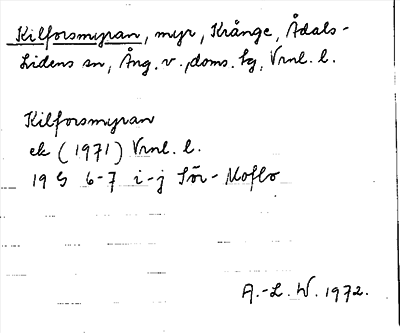 Kilforsmyran, myr, Krånge, Ådals-
Lidens sn, Ång. v., doms. hg, Vrnl. l.
Kilforsmyran
ek (1971) Vrnl. l.
19 G 6-7 i-j Sör-Moflo
A.-L. W. 1972.